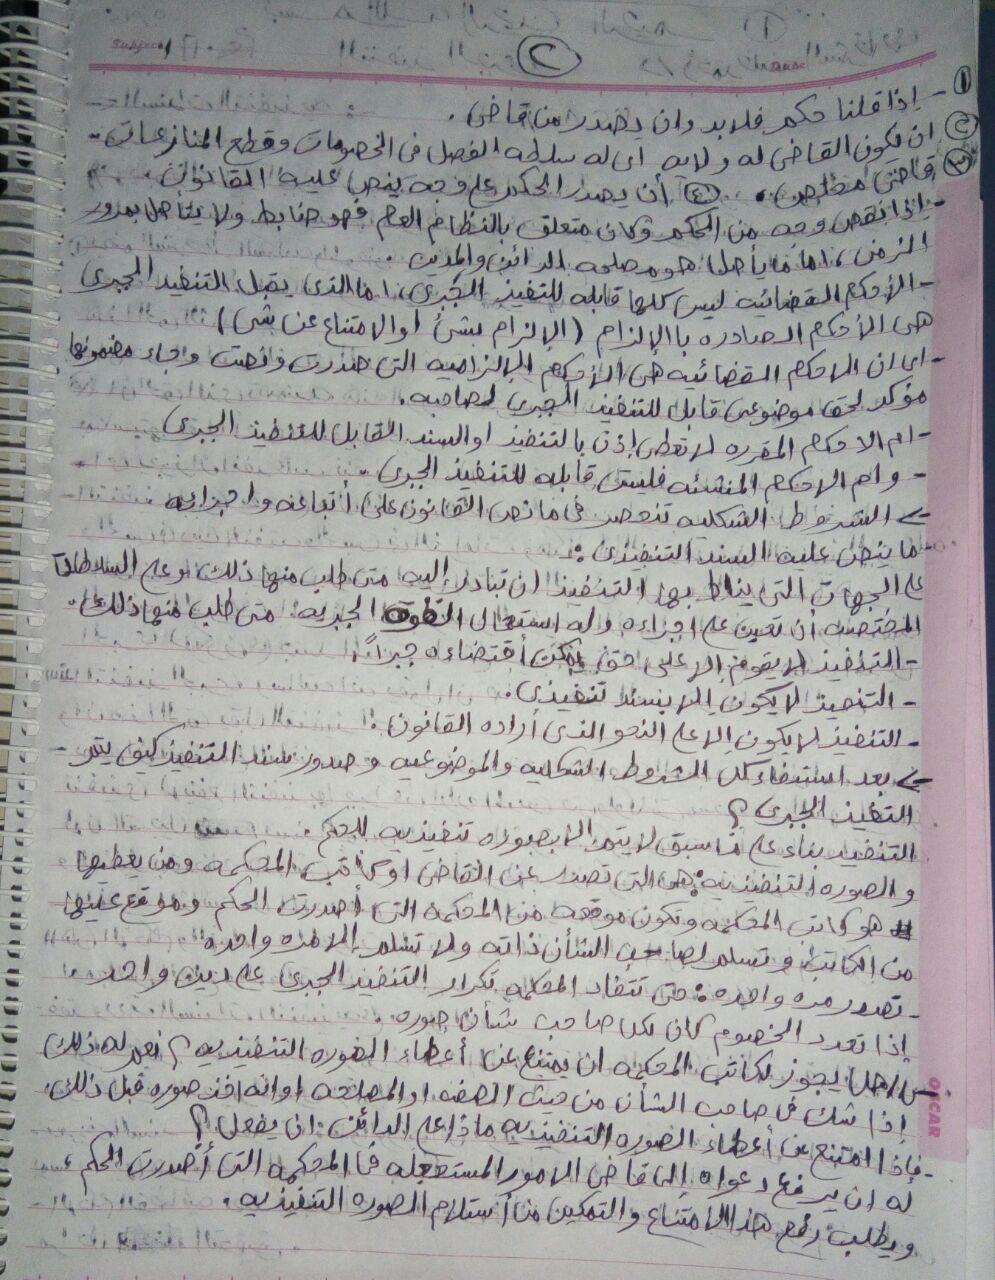 Subject
٢
Date
١- إذا قلنا حكم فلابد وان يصدر من قاضي .
٢ ان يكون القاضى له ولايه اى له سلطه الفصل فى الخصومات وقطع المنازعات -
٣ قاضى مختص . ٤ أن يصدر الحكم على وجه ينص عليه القانون .
- إذا نقص وجه من الحكم وكان متعلق بالنظام العام فهو ضابط ولا يتأصل بمرور
الزمن ، اما ما يأصل هو مصلحه الدائن والمدين .
- الأحكام القضائيه ليس كلها قابله للتنفيذ الجبرى ، اما الذى يقبل التنفيذ الجبرى
هى الأحكام الصادره باالإلزام ( الإلزام بشئ أو الامتناع عن شئ )
- اى ان الاحكام القضائيه هى الأحكام الإلزاميه التى صدرت وانصت وجاء مضمونها
مؤكد لحق موضوعى قابل للتنفيذ الجبرى لصاحبه .
- ام الاحكام المقرره لا تعطى إذن بالتنفيذ او السند القابل للتنفيذ الجبرى
- وام الاحكام المنشئه فليستى قابله للتنفيذ الجبرى .
> الشروط الشكليه تنحصر فى ما نص القانون على أتباعه واجرائه
- ما ينص عليه السند التنفيذى :
على الجهات التى يناط بها التنفيذ ان تبادر إليه متى طلب منها ذلك وعلى السلاطات
المختصه أن تعين على اجراءه وله استعمال القوه الجبريه متى طلب منها ذلك .
- التنفيذ لا يقوم إلا على حق يمكن أقتضاءه جبراً .
- التنفيذ لا يكون إلا بسند تنفيذى .
- التنفيذ لا يكون الا على النحو الذى أراده القانون .
> بعد استيفاء كل الشروط الشكليه والموضوعيه وصدور سند التنفيذ كيف يتم -
التنفيذ الجبرى ؟
التنفيذ بناء على ما سبق لا يتم إلا بصوره تنفيذيه للحكم .
و الصوره التنفيذيه : هى التى تصدر عن القاضى او كاتب المحكمه ومن يعطيها
هو كاتب المحكمه وتكون موقعه من المحكمه التى أصدرت الحكم وموقع عليها
من الكاتب و تسلم لصاحب الشأن ذاته ولا تسلم إلا مره واحده
- تصدر مره واحده : حتى تتفاد المحكمه تكرار التنفيذ الجبرى على دين واحد .
إذا تعدد الخصوم كان لكل صاحب شأن صوره .
س/ هل يجوز لكاتب المحكمه ان يمتنع عن أعطاء الصوره التنفيذيه ؟ نعم له ذلك
إذا شك فى صاحب الشأن من حيث الصفه او المصلحه او انه اخذ صوره قبل ذلك .
- فإذا امتنع عن أعطاء الصوره التنفيذيه ماذا على الدائن ان يفعل ؟
له ان يرفع دعواه إلى قاضى الامور المستعجله فى المحكمه التى أصدرت الحكم
ويطلب رفع هذا الامتناع والتمكين من أستلام الصوره التنفيذيه .
OSCAR